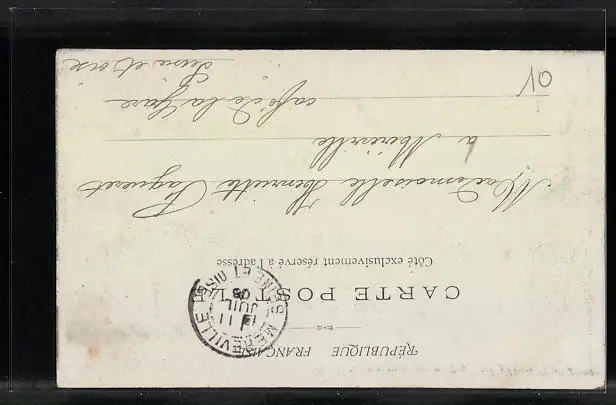 RÉPUBLIQUE FRANÇAISE
CARTE POSTALE
Côté exclusivement réservé a l'adresse
MEREVILLE
SEINE ET OISE
11
JUIL
05
Mademoiselle Henriette Paqueret
a Méréville
café de la Gare
Seine et oise
10